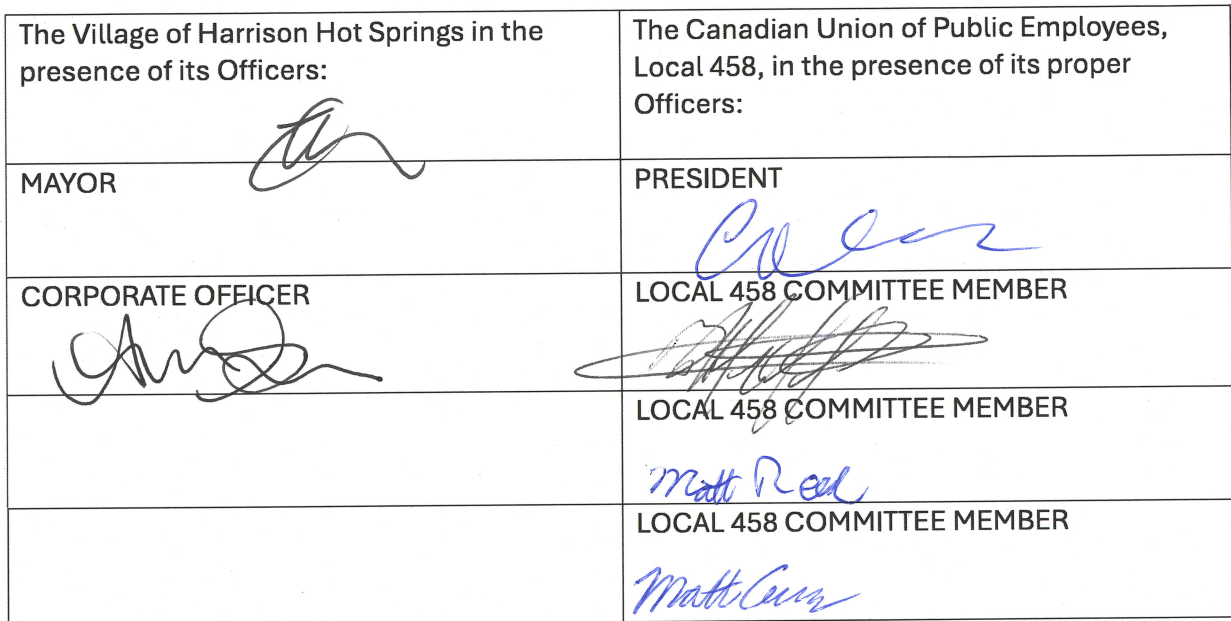 The Village of Harrison Hot Springs in the
presence of its Officers:
The Canadian Union of Public Employees,
Local 458, in the presence of its proper
Officers:
MAYOR
PRESIDENT
CORPORATE OFFICER
LOCAL 458 COMMITTEE MEMBER
LOCAL 458 COMMITTEE MEMBER
Matt
LOCAL 458 COMMITTEE MEMBER
Matt